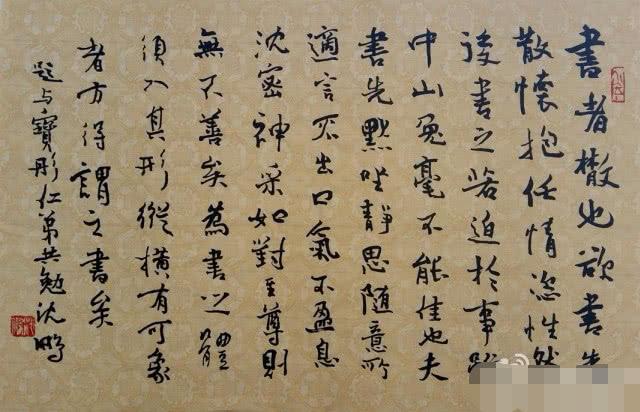 書者散也欲書先
散懷抱任情恣性然
後書之若迫於事雖
中山兔毫不能佳也夫
書先默坐靜思隨意所
適言不出口氣不盈息
沈密神采如對至尊則
無不善矣為書之體
須入其形縱橫有可象
者方得謂之書矣
題与寶彤仁弟共勉沈鵬